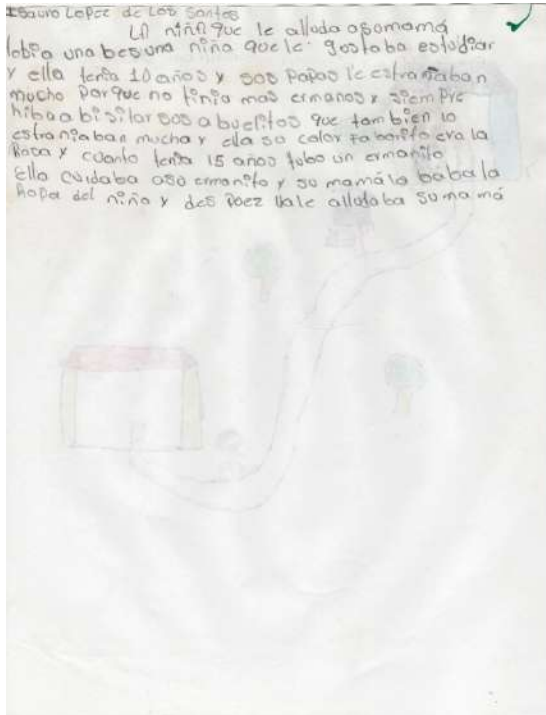 Isauro Lopez de Los Santos
La niña que le alluda asomamá
labia una bes una niña que le gostaba estudiar
y ella tenia 10 años y sos papas le estrañaban
mucho porque no tinia mas ermanos y siempre
hibaa bisitar sos abuelitos que tambien lo
estraniaban mucha y ella so color faborito era la
Rosa y cuanto tenia 15 años tubo un ermanito
ella cuidaba aso ermanito y su mamá la baba la
Ropa del niño y des poez lla le alludaba su mamá